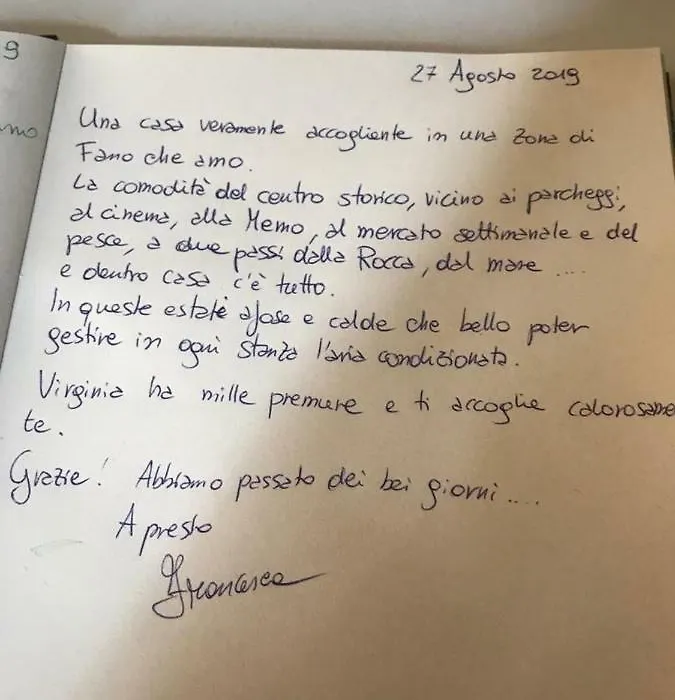 9
mo
27 Agosto 2019
Una casa veramente accogliente in una zona di
Fano che amo.
La comodità del centro storico, vicino ai parcheggi,
al cinema, alla Memo, al mercato settimanale e del
pesce, a due passi dalla Rocca, dal mare ....
e dentro casa c'è tutto.
In queste estate afose e calde che bello poter
gestire in ogni stanza l'aria condizionata.
Virginia ha mille premure e ti accoglie calorosame
te.
Grazie! Abbiamo passato dei bei giorni....
A presto
Francesca